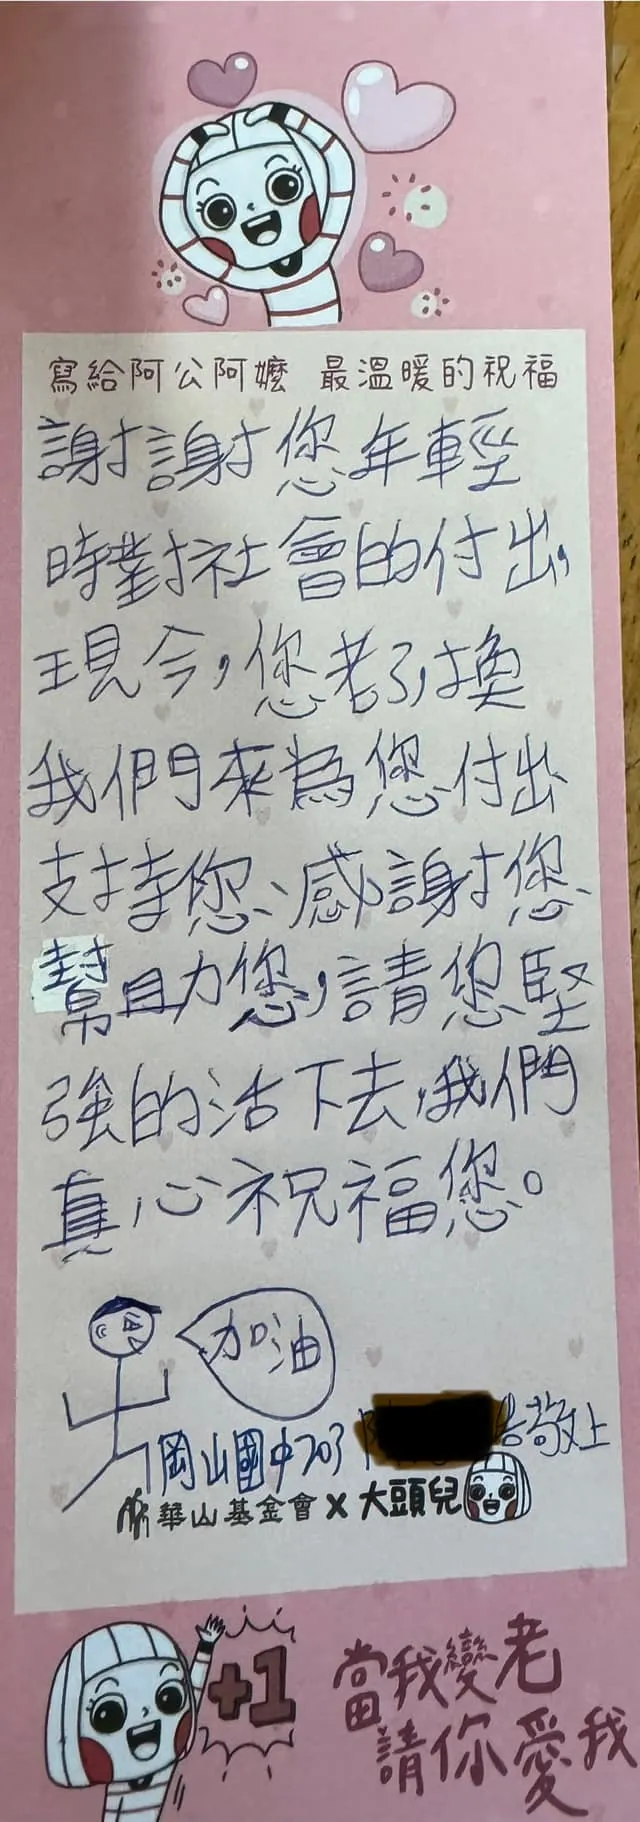 寫給阿公阿嬤 最溫暖的祝福
謝謝您年輕
時對社會的付出,
現今,您老了,換
我們來為您付出
支持您、感謝您、
幫助您,請您堅
強的活下去,我們
真心祝福您。
加油
岡山國中703 敬上
華山基金會 x 大頭兒
+1
當我變老
請你愛我